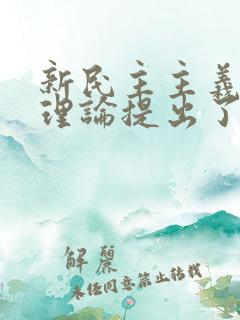 新民主主義
理論提出了
解麗
未经同意禁止转载